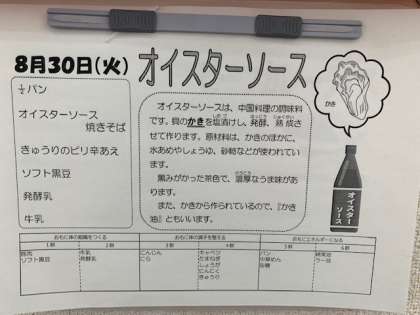 8月30日(火)
オイスターソース
½パン
オイスターソース
焼きそば
きゅうりのピリ辛あえ
ソフト黒豆
発酵乳
牛乳
オイスターソースは、中国料理の調味料
です。貝のかきを塩漬けし、発酵、熟成さ
せて作ります。原材料は、かきのほかに、
水あめやしょうゆ、砂糖などが使われてい
ます。
黒みがかった茶色で、濃厚なうま味があ
ります。
また、かきから作られているので、『かき
油』ともいいます。
かき
オイスターソース
おもに体の組織をつくる
おもに体の調子を整える
おもにエネルギーになる
1群 2群 3群 4群 5群 6群
豚肉 牛乳 にんじん キャベツ パン
ソフト黒豆 発酵乳 にら たまねぎ 中華めん ラー油
しょうが 砂糖
にんにく
きゅうり